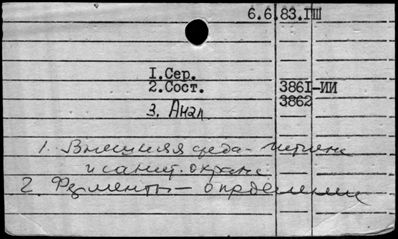 6.6.83.ГШ
I.Сер.
2.Сост. 386I-ИИ
3. Анал. 3862
1. Внешняя среда - гигиена
и санит. охрана
2. Ферменты - определение